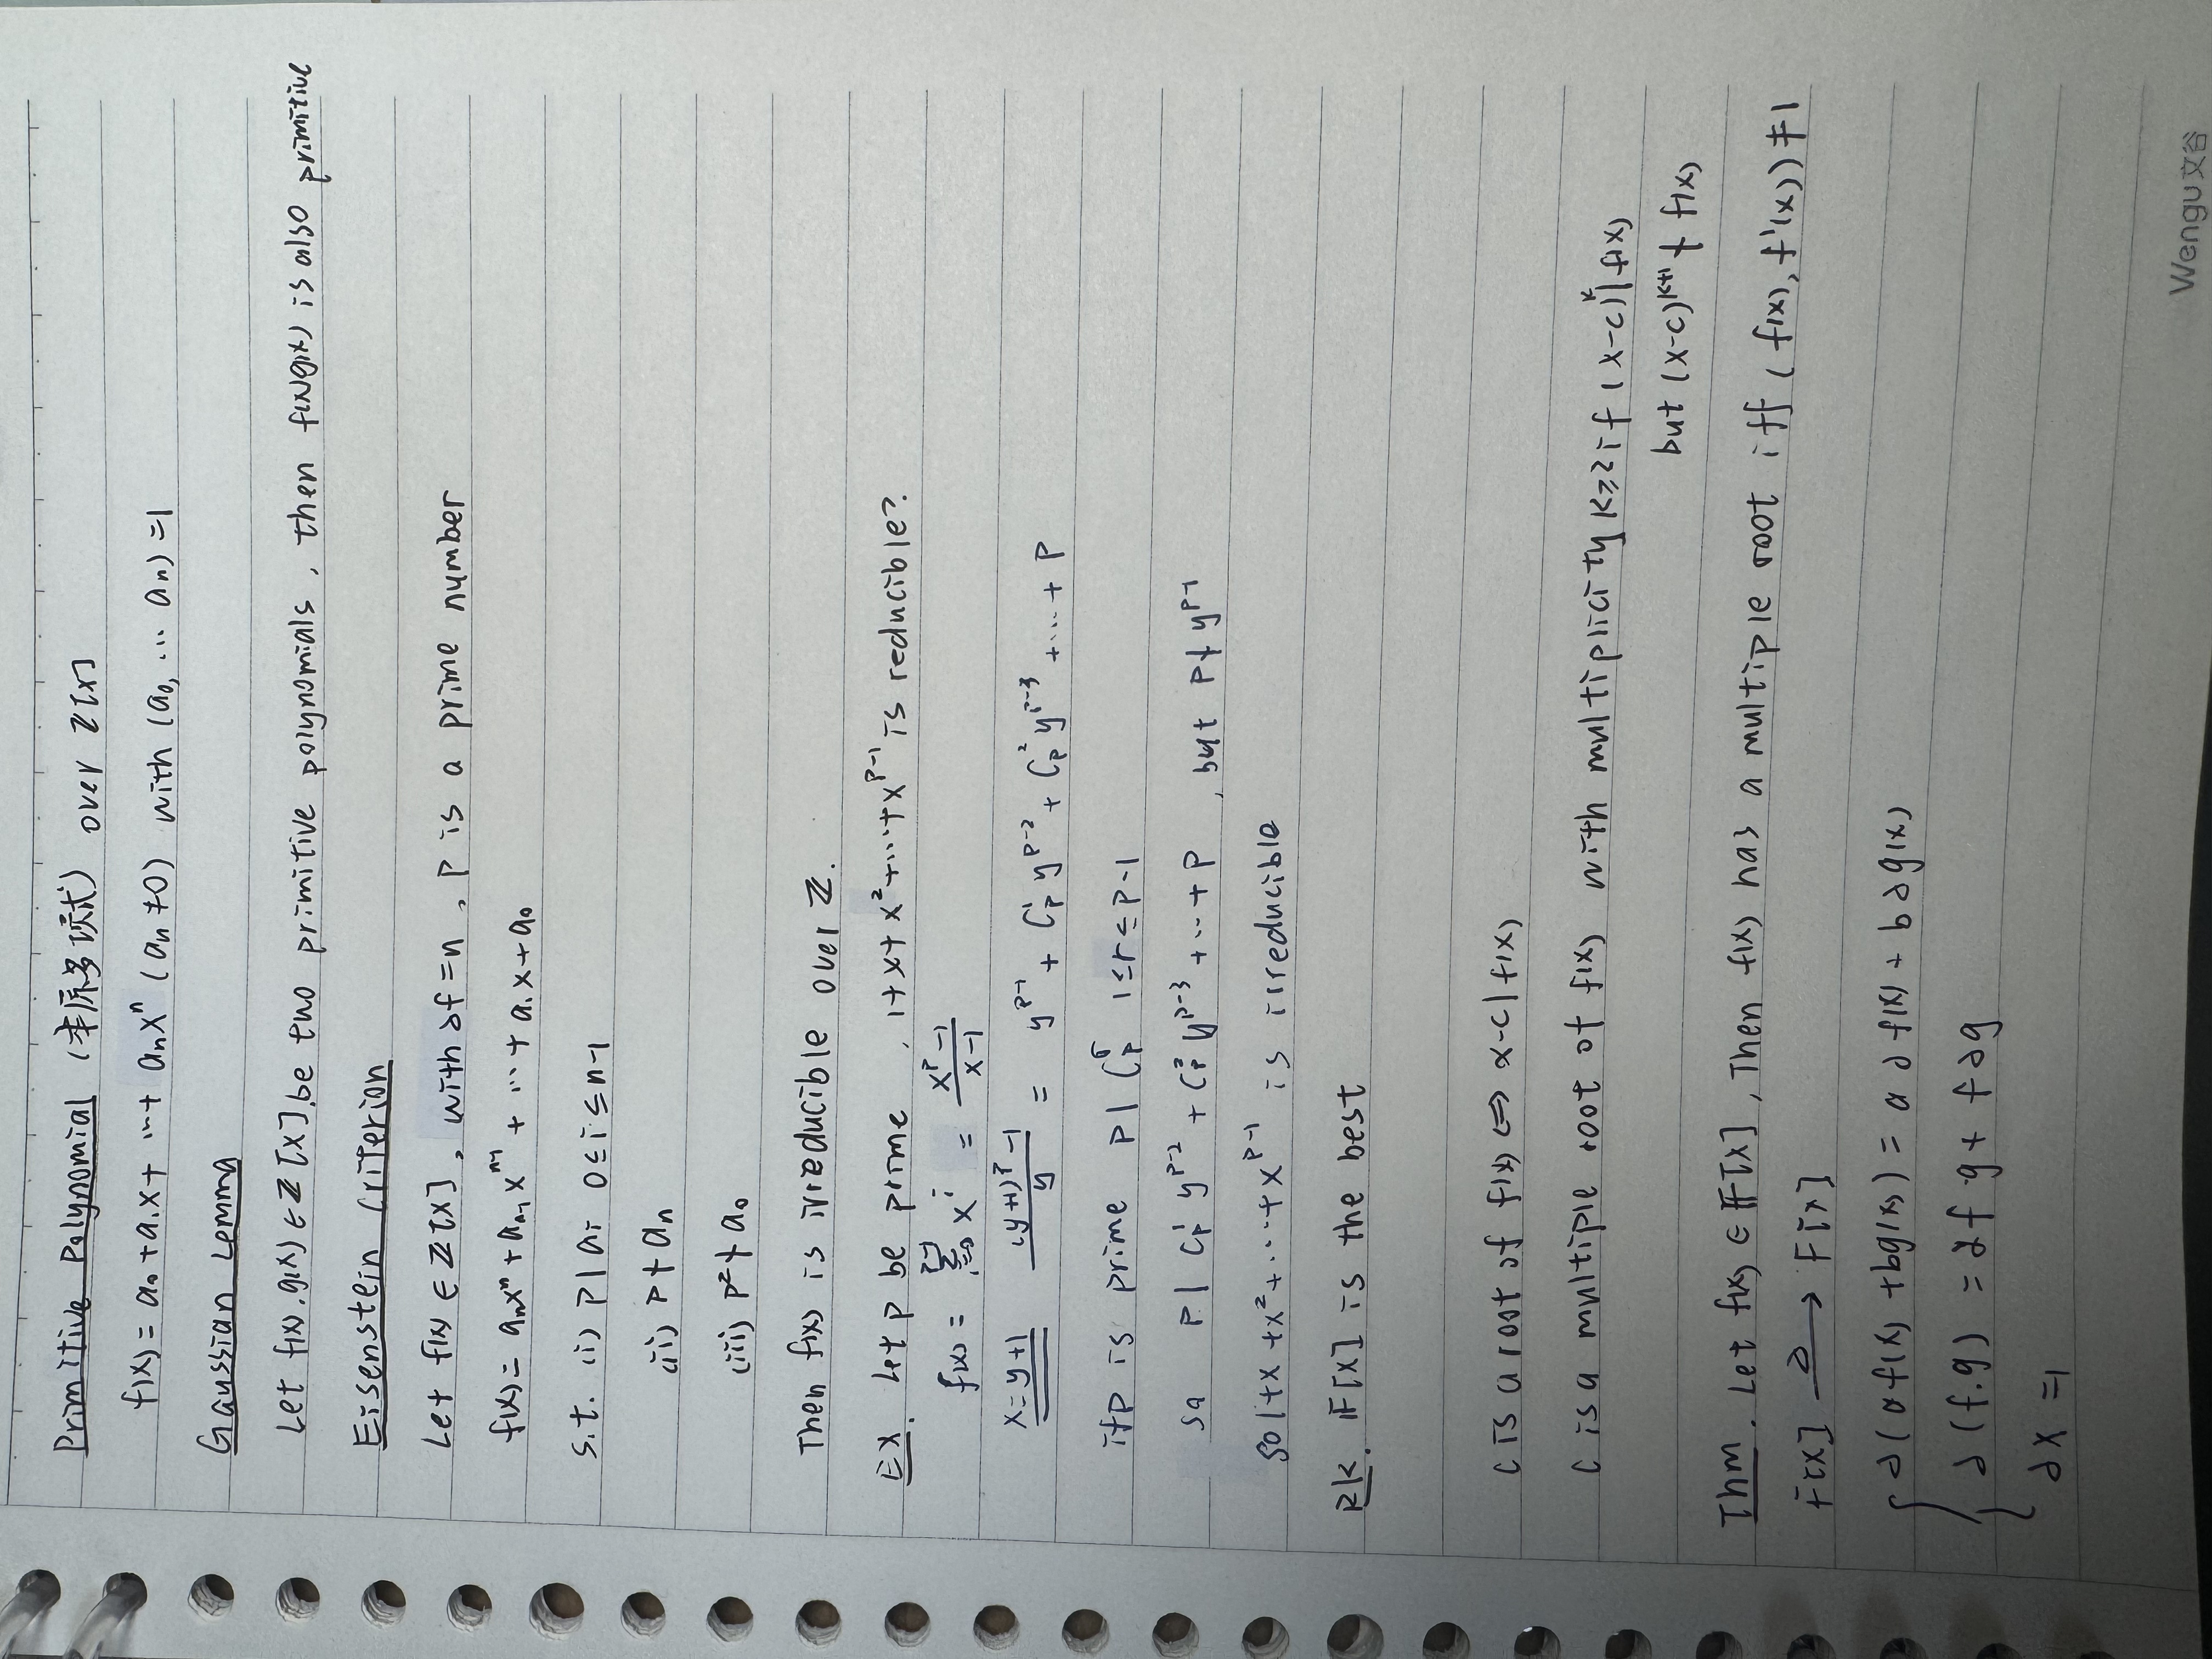 Primitive Polynomial (本原多项式) over ℤ[x]
f(x) = a₀ + a₁x + ⋯ + aₙxⁿ (aₙ ≠ 0) with (a₀, ⋯ aₙ) = 1
Gaussian Lemma
Let f(x), g(x) ∈ ℤ[x], be two primitive polynomials, then f(x)g(x) is also primitive
Eisenstein Criterion
Let f(x) ∈ ℤ[x], with ∂f = n, p is a prime number
f(x) = aₙxⁿ + aₙ₋₁xⁿ⁻¹ + ⋯ + a₁x + a₀
s.t. (i) p | aᵢ 0 ≤ i ≤ n-1
(ii) p ∤ aₙ
(iii) p² ∤ a₀
Then f(x) is irreducible over ℤ.
EX. Let p be prime, 1 + x + x² + ⋯ + x^{p-1} is reducible?
f(x) = \sum_{i=0}^{p-1} x^i = \frac{x^p - 1}{x - 1}
x = y+1 \frac{(y+1)^p - 1}{y} = y^{p-1} + C_p^1 y^{p-2} + C_p^2 y^{p-3} + ⋯ + p
if p is prime p | C_p^r 1 ≤ r ≤ p-1
so p | C_p^1 y^{p-2} + C_p^2 y^{p-3} + ⋯ + p, but p ∤ y^{p-1}
so 1 + x + x² + ⋯ + x^{p-1} is irreducible
RK. 𝔽[x] is the best
c is a root of f(x) ⇔ x-c | f(x)
c is a multiple root of f(x) with multiplicity k ≥ 2 if (x-c)^k | f(x)
but (x-c)^{k+1} ∤ f(x)
Thm. Let f(x) ∈ 𝔽[x], Then f(x) has a multiple root iff (f(x), f'(x)) ≠ 1
F[x] \xrightarrow{∂} F[x]
∂(af(x) + bg(x)) = a∂f(x) + b∂g(x)
∂(f·g) = ∂f·g + f∂g
∂x = 1
Wengu文谷